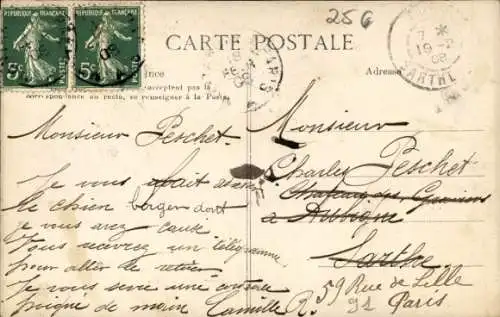 REPUBLIQUE FRANÇAISE REPUBLIQUE FRANÇAISE
5c POSTE 5c POSTE
256
CARTE POSTALE
Adresse
7 *
19 - 2
08
SARTHE
PARIS
08
nce
acceptent pas la
correspondance au recto, se renseigner à la Poste
Monsieur Peschet
Je vous
le chien berger dont
je vous avez cause
Vous recevrez un télégramme
pour aller le retirer
Je vous serre une
poigné de main Camille R.
Monsieur
Charles Peschet
Château des
à Aubigné
Sarthe
59 Rue de Lille
Paris